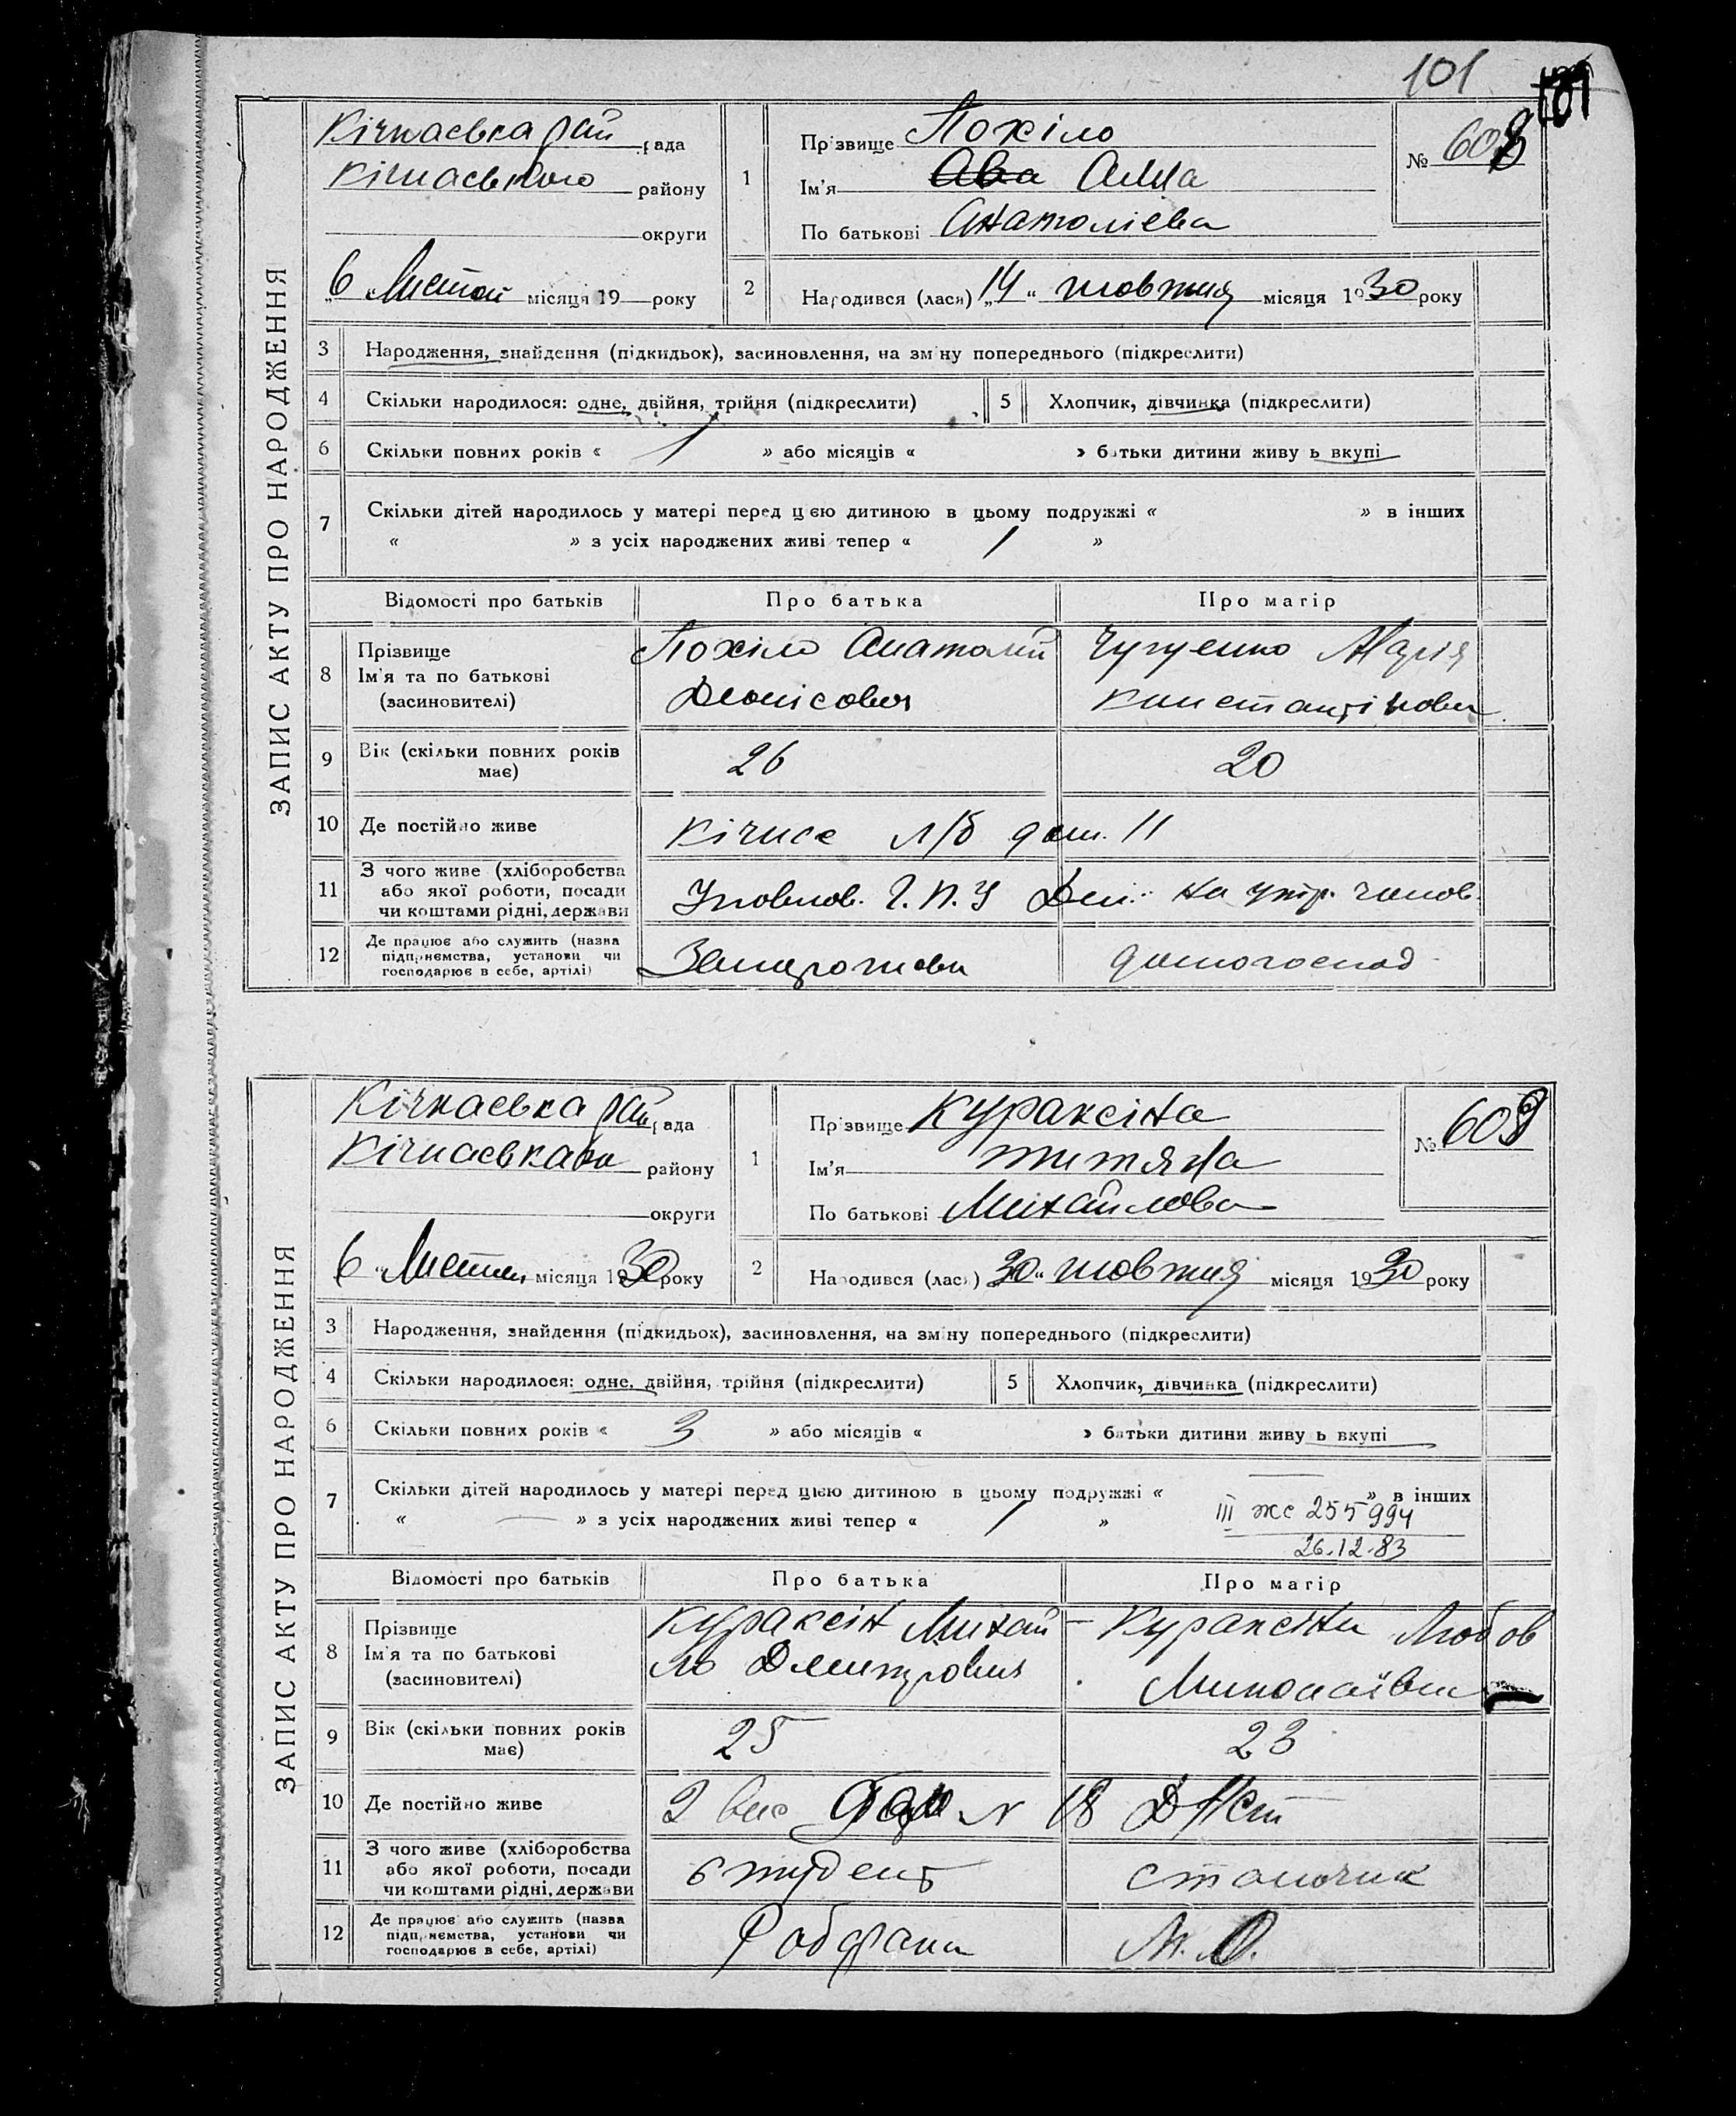 101
101
ЗАПИС АКТУ ПРО НАРОДЖЕННЯ
Кічкаська рай рада
Кічкаського району
округи
„6 Листоп місяця 19 року
1
Прізвище Похіло
Ім'я Ава Алла
По батькові Анатоліева
№ 608
2
Народився (лася) „14“ жовтня місяця 1930 року
3 Народження, знайдення (підкидьок), засиновлення, на зміну попереднього (підкреслити)
4 Скільки народилося: одне, двійня, трійня (підкреслити) 5 Хлопчик, дівчинка (підкреслити)
6 Скільки повних років « 1 » або місяців « » батьки дитини живуть вкупі
7 Скільки дітей народилось у матері перед цією дитиною в цьому подружжі « » в інших
« » з усіх народжених живі тепер « 1 »
Відомості про батьків Про батька Про матір
8 Прізвище
Ім'я та по батькові
(засиновителі)
Похіло Анатолій
Денісович
Марія
Константіновн
9 Вік (скільки повних років
має)
26 20
10 Де постійно живе Кічкас л/б дом. 11
11 З чого живе (хліборобства
або якої роботи, посади
чи коштами рідні, держави
Уповнов. Г.П.У на утр. чолов.
12 Де працює або служить (назва
підприємства, установи чи
господарює в себе, артілі)
домогоспод
ЗАПИС АКТУ ПРО НАРОДЖЕННЯ
Кічкаська рай рада
Кічкаського району
округи
6 „Листоп місяця 1930 року
1
Прізвище Кураксіна
Ім'я титяна
По батькові Михайлова
№ 609
2
Народився (лася) 30“ жовтня місяця 1930 року
3 Народження, знайдення (підкидьок), засиновлення, на зміну попереднього (підкреслити)
4 Скільки народилося: одне, двійня, трійня (підкреслити) 5 Хлопчик, дівчинка (підкреслити)
6 Скільки повних років « 3 » або місяців « » батьки дитини живуть вкупі
7 Скільки дітей народилось у матері перед цією дитиною в цьому подружжі « — » в інших
« — » з усіх народжених живі тепер « 1 »
III жс 255994
26.12.83
Відомості про батьків Про батька Про матір
8 Прізвище
Ім'я та по батькові
(засиновителі)
Кураксін Михай-
ло Дмитрович
Кураксіна Любов
Миколаївна
9 Вік (скільки повних років
має)
25 23
10 Де постійно живе 2 вис дом N 18
11 З чого живе (хліборобства
або якої роботи, посади
чи коштами рідні, держави
студент
12 Де працює або служить (назва
підприємства, установи чи
господарює в себе, артілі)
Рабфака